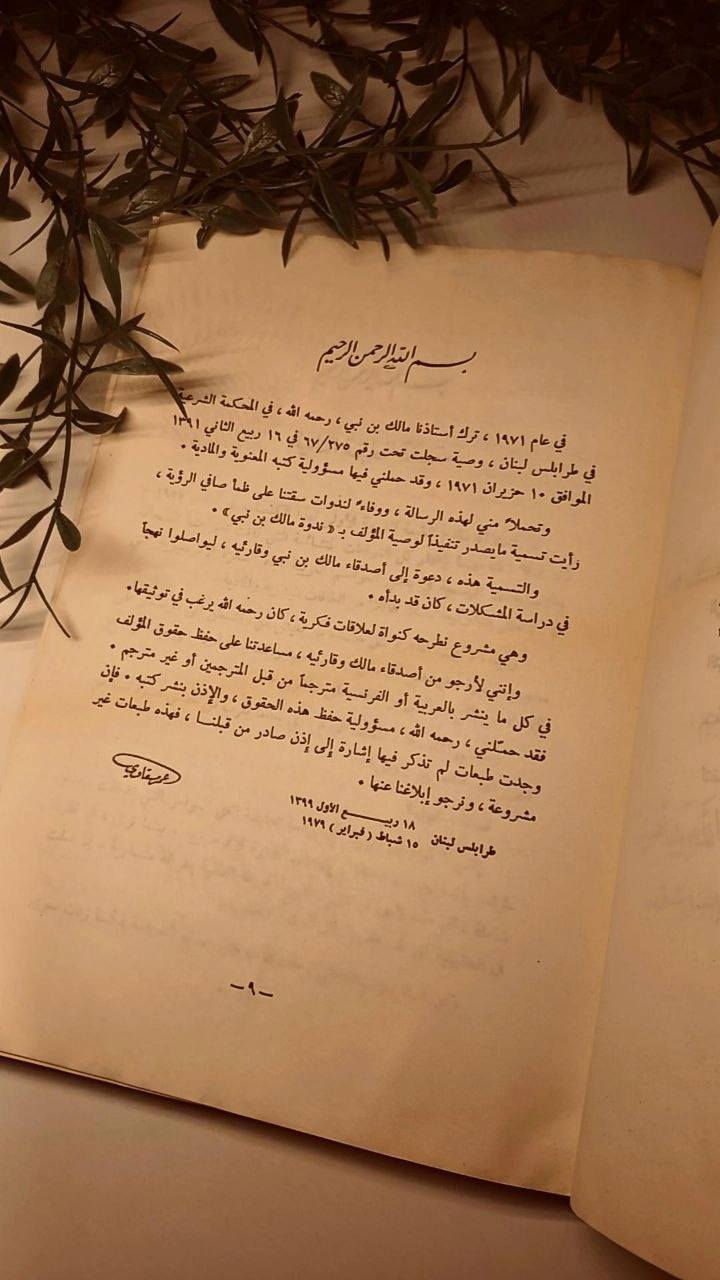 بسم الله الرحمن الرحيم
في عام ١٩٧١ ، ترك أستاذنا مالك بن نبي ، رحمه الله ، في المحكمة الشرعية
في طرابلس لبنان ، وصية سجلت تحت رقم ٦٧/٢٧٥ في ١٦ ربيع الثاني ١٣٩١
الموافق ١٠ حزيران ١٩٧١ ، وقد حملني فيها مسؤولية كتبه المعنوية والمادية .
وتحملاً مني لهذه الرسالة ، ووفاءً لندوات سقتنا على ظمأ صافي الرؤية ،
رأيت تسمية مايصدر تنفيذاً لوصية المؤلف بـ « ندوة مالك بن نبي » .
والتسمية هذه ، دعوة إلى أصدقاء مالك بن نبي وقارئيه ، ليواصلوا نهجاً
في دراسة المشكلات ، كان قد بدأه .
وهي مشروع نطرحه كنواة لعلاقات فكرية ، كان رحمه الله يرغب في توثيقها.
وإنني لأرجو من أصدقاء مالك وقارئيه ، مساعدتنا على حفظ حقوق المؤلف
في كل ما ينشر بالعربية أو الفرنسية مترجماً من قبل المترجمين أو غير مترجم .
فقد حمّلني ، رحمه الله ، مسؤولية حفظ هذه الحقوق ، والإذن بنشر كتبه . فإن
وجدت طبعات لم تذكر فيها إشارة إلى إذن صادر من قبلنا ، فهذه طبعات غير
مشروعة ، ونرجو إبلاغنا عنها .
عمر مسقاوي
طرابلس لبنان ١٨ ربيع الأول ١٣٩٩
١٥ شباط ( فبراير ) ١٩٧٩
– ٩ –